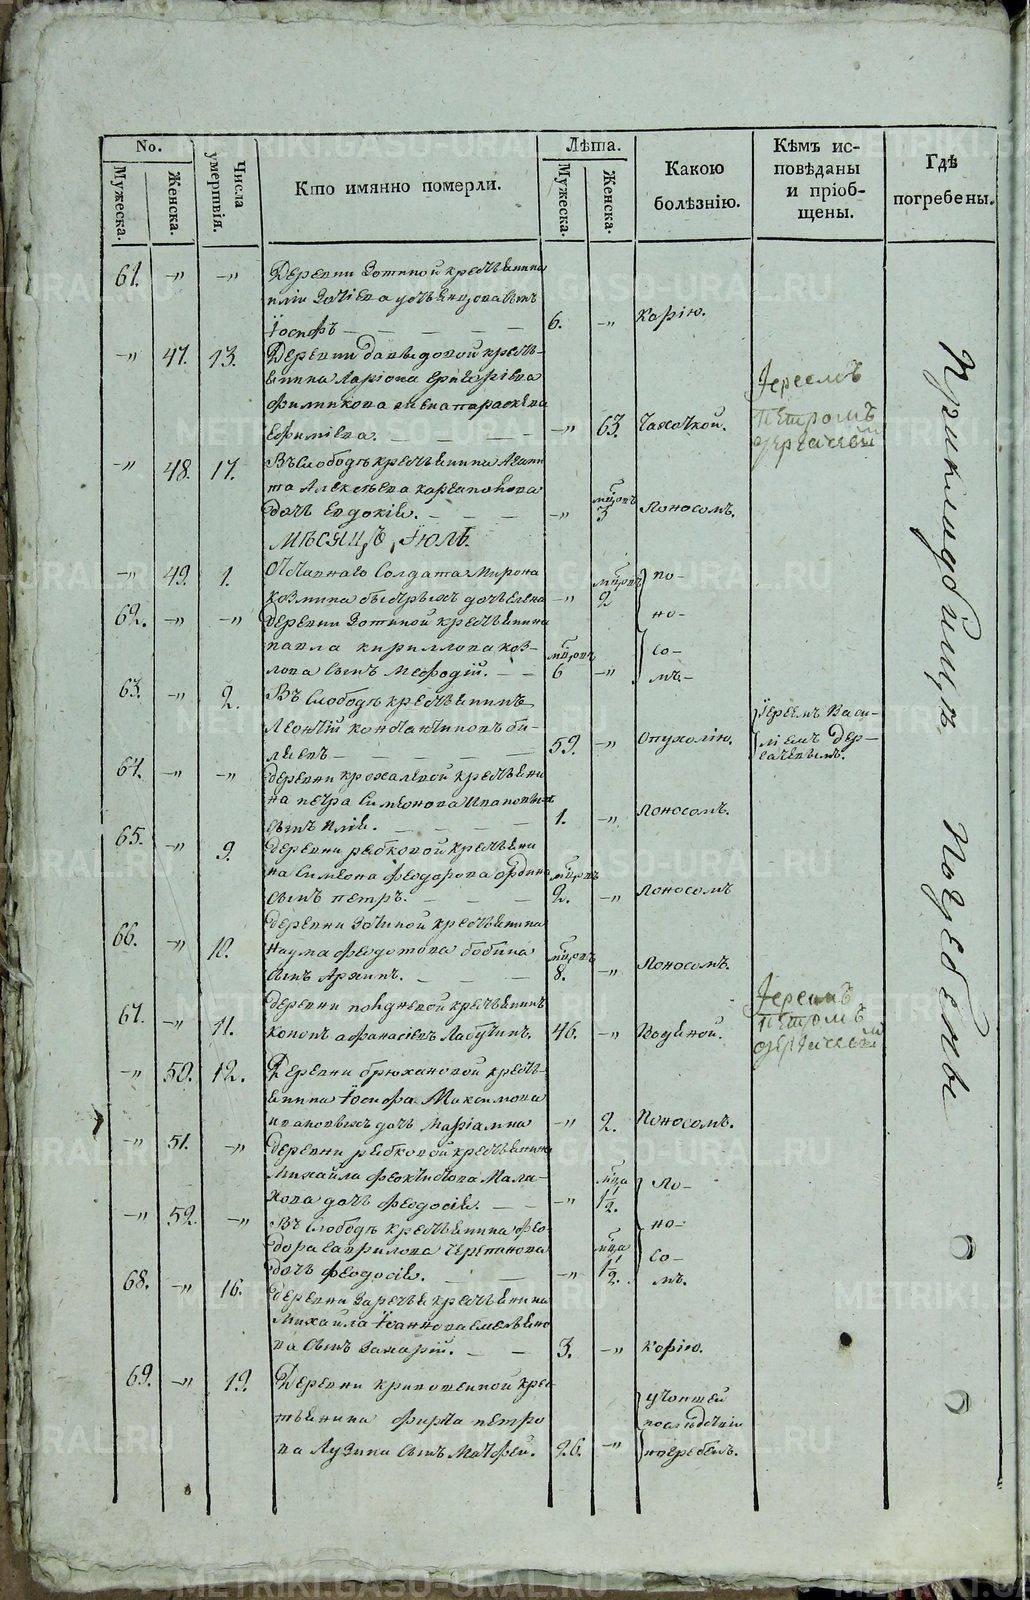 No.
Мужеска.
Женска.
Числа умертвія.
Кто имянно померли.
Лѣта.
Мужеска.
Женска.
Какою болѣзнію.
Кѣмъ исповѣданы и пріобщены.
Гдѣ погребены.
61. -„ -„ Деревни Зотиной крестьянина
сынъ
Іосифъ 6. -„ Корію.
-„ 47. 13. Деревни Давыдовой кресть-
янина Ларіона Григоріева
Филикова жена Параскева
Ефиміева. -„ 63. Чахоткой.
Іереемъ
Петромъ
-„ 48. 17. Въ Слободѣ крестьянина Агапи-
та Алексѣева Карсапокова
дочь Евдокія. -„ мцовъ 3 Поносомъ.
Мѣсяцъ Іюль.
-„ 49. 1. Отставнаго Солдата Мирона
Козмина дочь Елена -„ мцовъ 2 по-
62. -„ -„ Деревни Зотиной крестьянина но-
Павла Кириллова Коз-
лова сынъ Мефодій. мцовъ 6 -„ со-
мъ-
63. -„ 2. Въ Слободѣ крестьянинъ
Леонтій Константиновъ Би-
ляевъ 59. -„ Опухолію.
Іереемъ Васи-
ліемъ Дер-
гачевымъ.
64. -„ -„ Деревни Крохалевой крестьяни-
на Петра Симеонова Ивановыхъ
сынъ Илія. 1. -„ Поносомъ.
65. -„ 9. Деревни Рябковой крестьяни-
на Симеона Феодорова Ордина
сынъ Петръ. мцовъ 2. -„ Поносомъ
66. -„ 10. Деревни Зотиной крестьянина
Наума Федотова Бобина
сынъ Архипъ. мцовъ 8. -„ Поносомъ.
67. -„ 11. Деревни крестьянинъ
Кононъ Афанасіевъ Лабутинъ. 46. -„ Водяной.
Іереемъ
Петромъ
-„ 50. 12. Деревни Брюхановой кресть-
янина Іосифа Максимова
Ивановыхъ дочь Маріамна -„ 2. Поносомъ.
-„ 51. -„ Деревни Рябковой крестьянина
Михайла Феоктистова Мала-
хова дочь Феодосія. -„ мца 1½. По-
-„ 52. -„ Въ Слободѣ крестьянина Фео- но-
дора Гаврилова Черепанова со-
дочь Феодосія. -„ мца 1½. мъ.
68. -„ 16. Деревни Заречья крестьянина
Михайла Іоаннова Емельяно-
ва сынъ Захарій. 3. -„ Корію.
69. -„ 19. Деревни Кривошеиной крес-
тьянина Фирса Петро-
ва Лузина сынъ Матфей. 26. -„
утопшей
по слѣдствію
погребенъ.
При кладбищѣ Погребены
METRIKI.GASO-URAL.RU